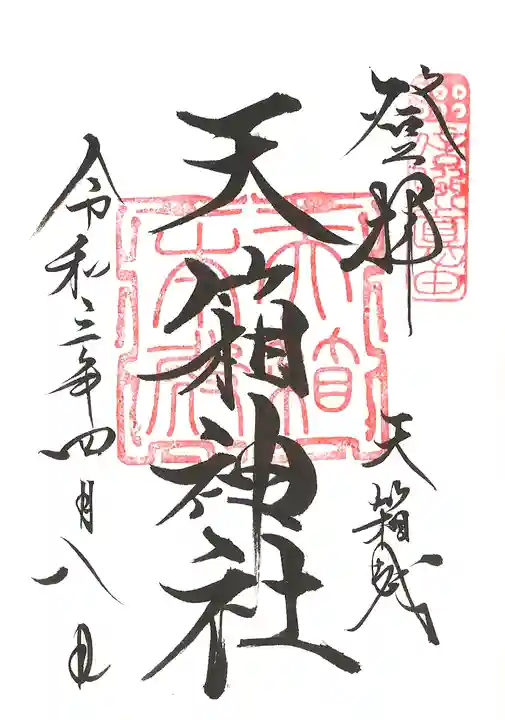 登拝
天箱城
天箱神社
令和三年四月八日